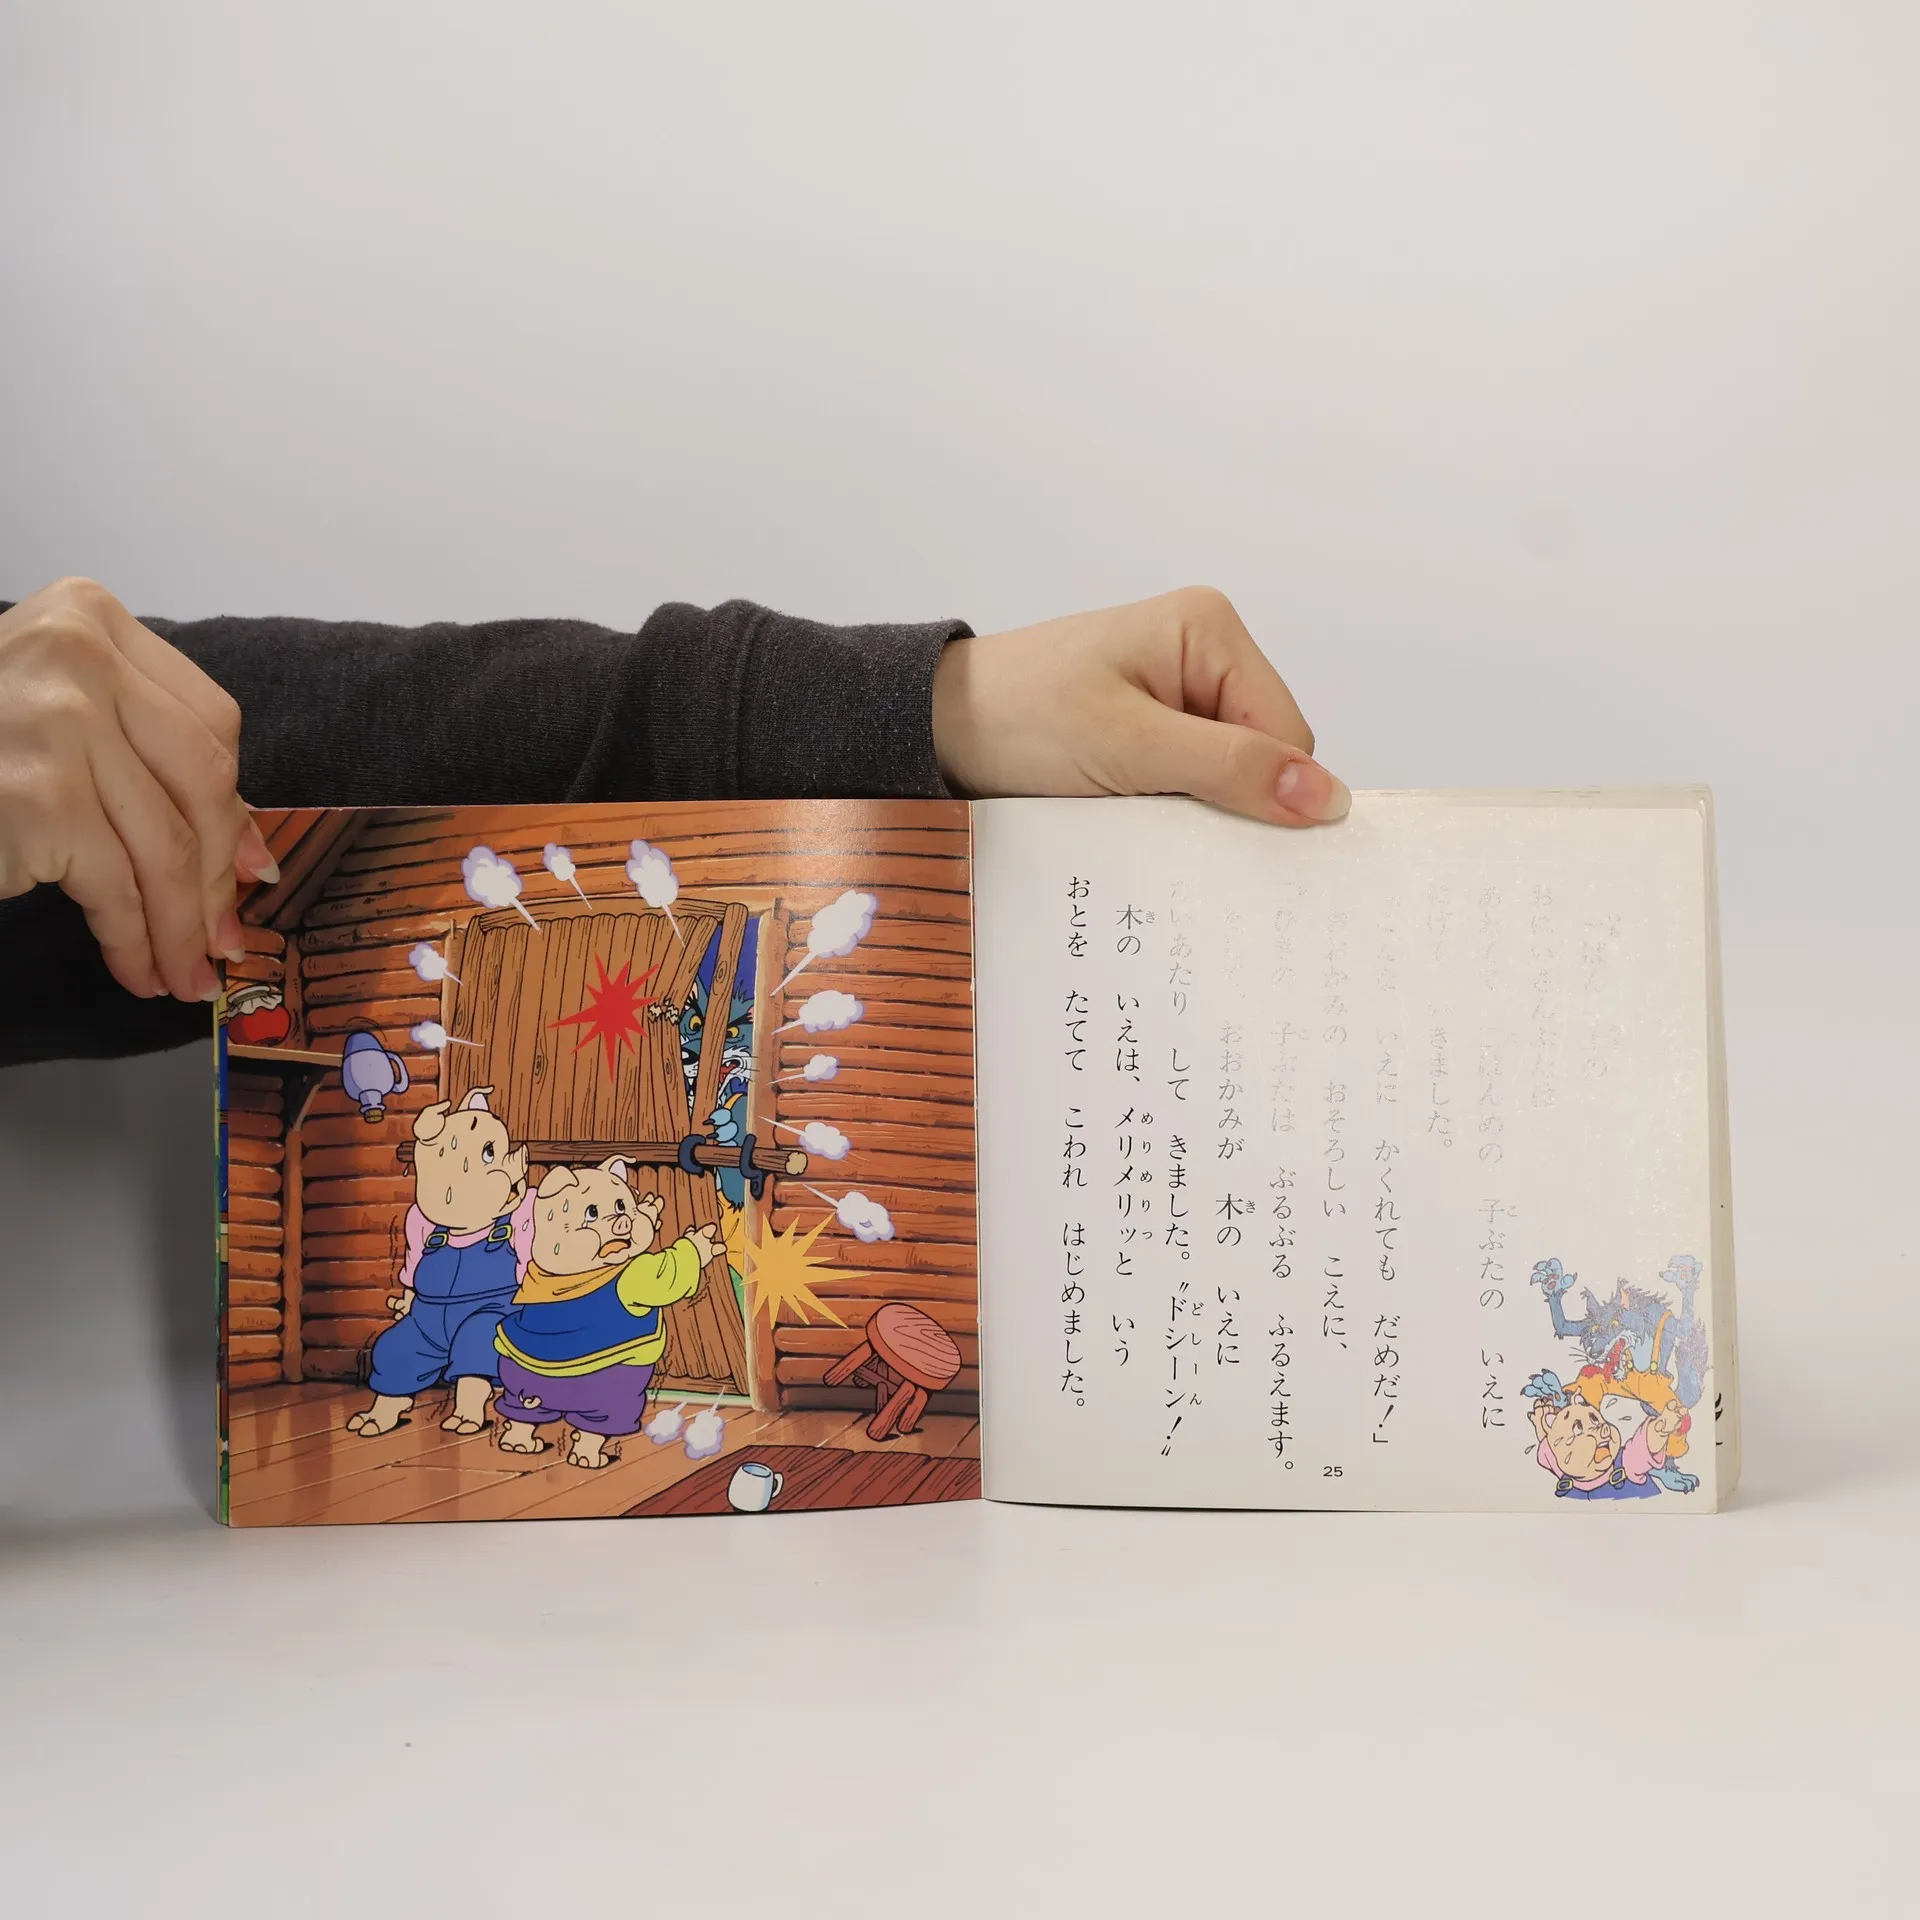 おにいさんぶたは
ばんめの 子ぶたの いえに
にげて いきました。
いえに かくれても だめだ!」
おおかみの おそろしい こえに、
ひきの 子ぶたは ぶるぶる ふるえます。
おおかみが 木の いえに
たいあたり して きました。〝ドシーン!〟
木の いえは、メリメリッと いう
おとを たてて こわれ はじめました。
25